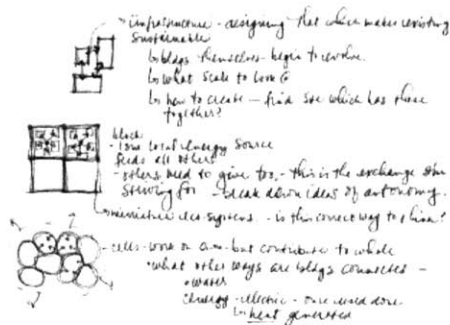 infrastructure - designing that which makes existing
sustainable
bldgs themselves - begin to evolve.
what scale to look @
how to create - find site which has these
together?
block
- local energy source
feeds all others
- others need to give too, - this is the exchange
striving for - break down ideas of autonomy.
miniature eco-systems - is this correct way to think?
- cells - work on own - but contribute to whole
• what other ways are bldgs connected -
• water
energy - electric - once used done.
heat generated